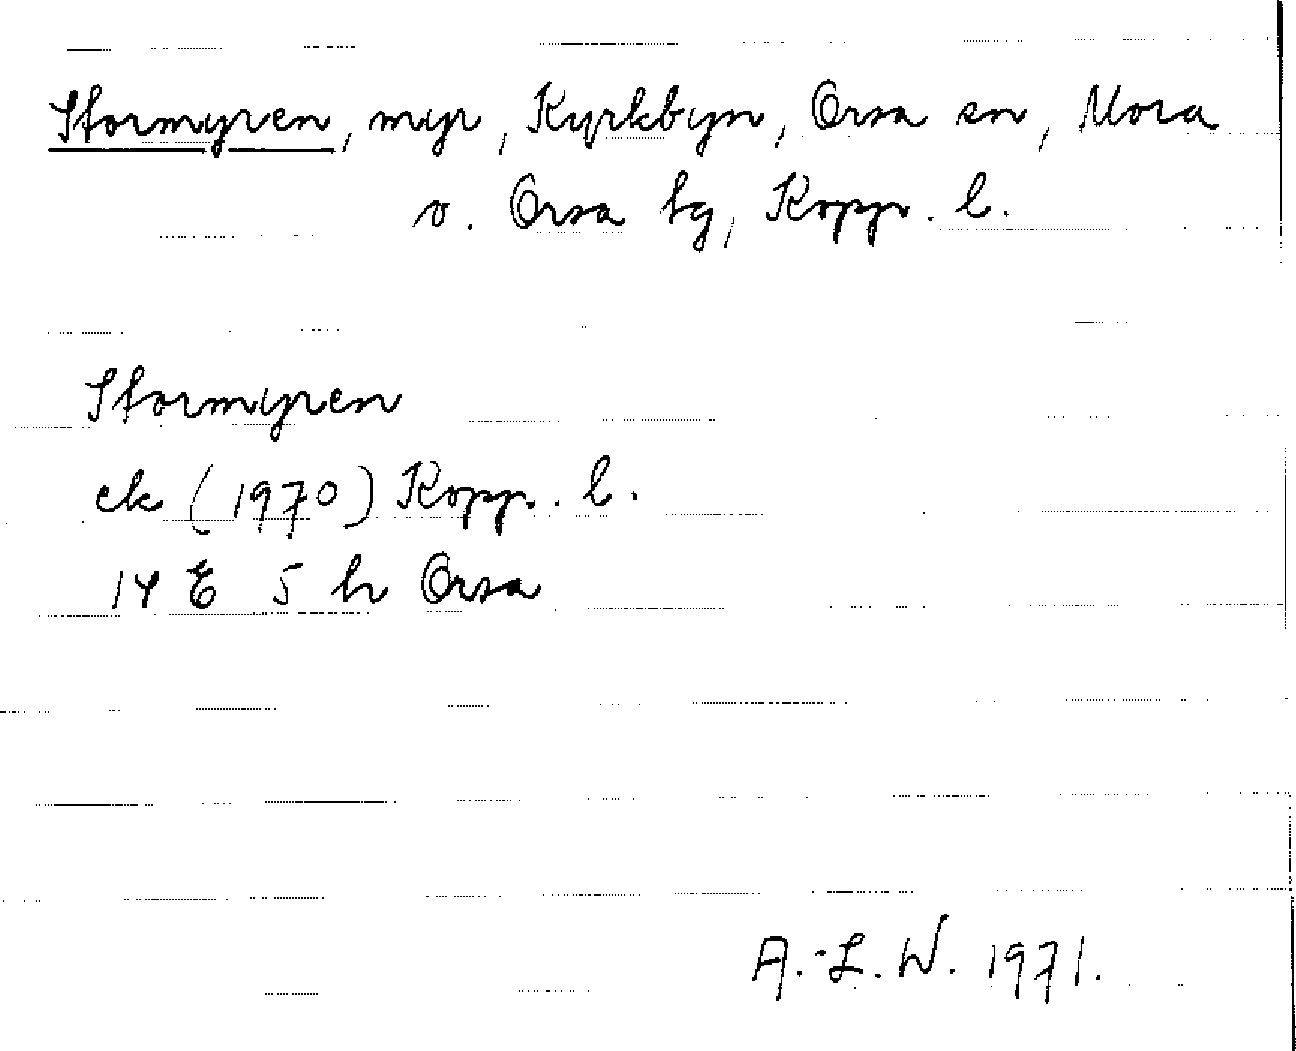 Stormyren, myr, Kyrkbyn, Orsa sn, Mora
o. Orsa tg, Kopp. l.
Stormyren
ek (1970) Kopp. l.
14 E 5 h Orsa
A.-L. W. 1971.